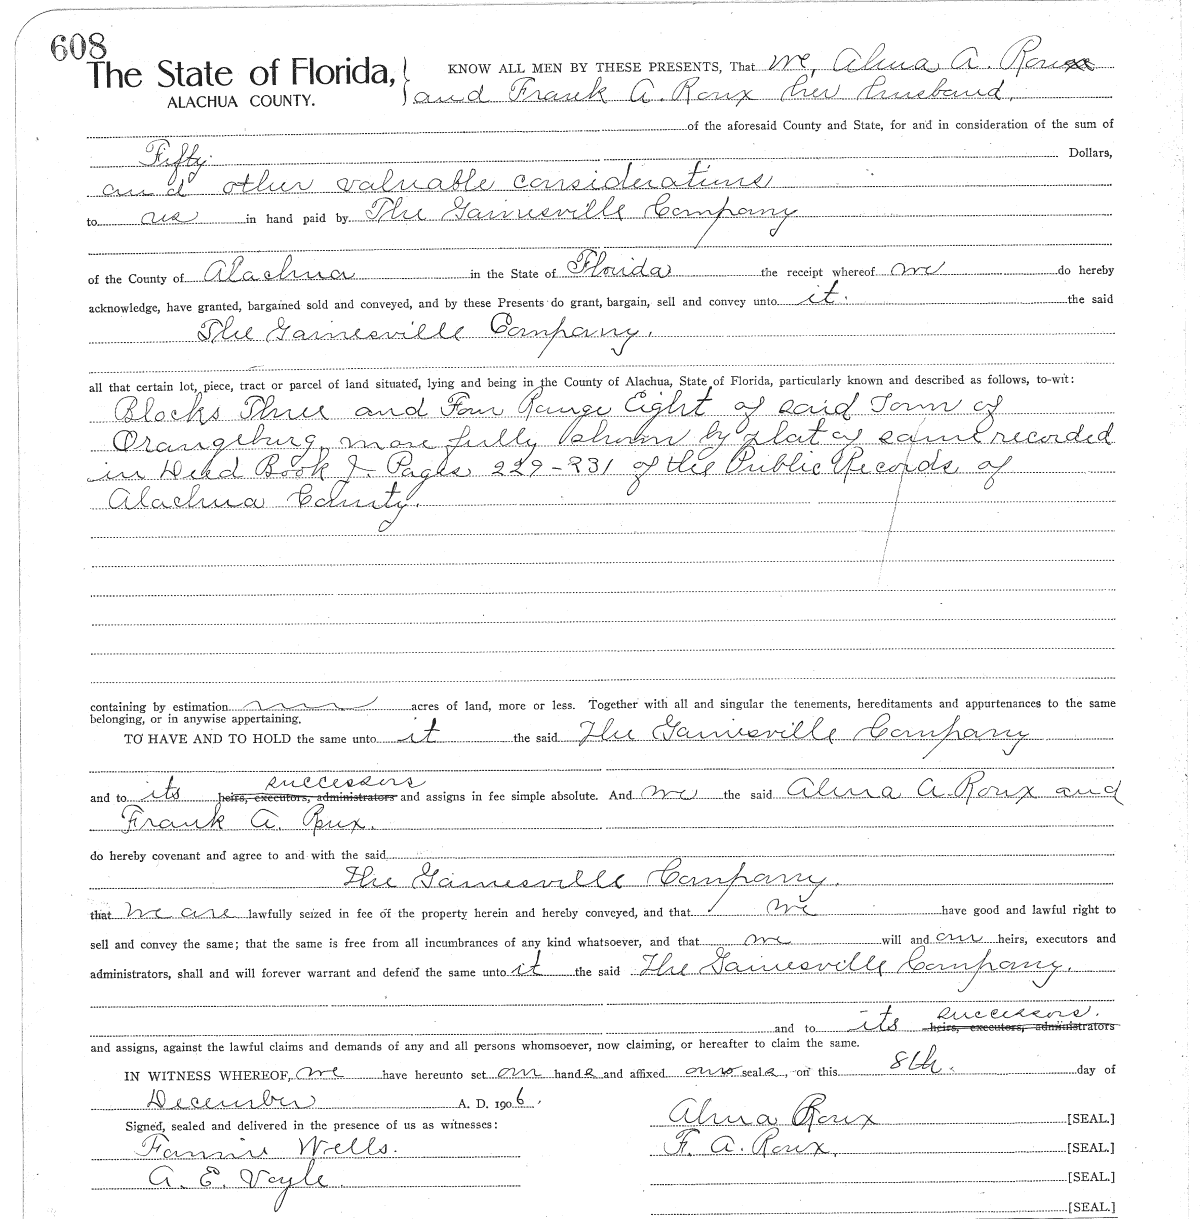 608
The State of Florida, KNOW ALL MEN BY THESE PRESENTS, That we, Alma A. Roux
ALACHUA COUNTY. and Frank A. Roux her husband,
of the aforesaid County and State, for and in consideration of the sum of
Fifty Dollars,
and other valuable considerations
to us in hand paid by The Gainesville Company
of the County of Alachua in the State of Florida the receipt whereof we do hereby
acknowledge, have granted, bargained sold and conveyed, and by these Presents do grant, bargain, sell and convey unto it. the said
The Gainesville Company.
all that certain lot, piece, tract or parcel of land situated, lying and being in the County of Alachua, State of Florida, particularly known and described as follows, to-wit:
Blocks Three and Four Range Eight of said Town of
Orangeburg, more fully shown by plat of same recorded
in Deed Book J. Pages 229-231 of the Public Records of
Alachua County.
containing by estimation acres of land, more or less. Together with all and singular the tenements, hereditaments and appurtenances to the same
belonging, or in anywise appertaining.
TO HAVE AND TO HOLD the same unto it the said The Gainesville Company
successors
and to its heirs, executors, administrators and assigns in fee simple absolute. And we the said Alma A. Roux and
Frank A. Roux.
do hereby covenant and agree to and with the said
The Gainesville Company.
that we are lawfully seized in fee of the property herein and hereby conveyed, and that we have good and lawful right to
sell and convey the same; that the same is free from all incumbrances of any kind whatsoever, and that we will and our heirs, executors and
administrators, shall and will forever warrant and defend the same unto it the said The Gainesville Company.
successors.
and to its heirs, executors, administrators
and assigns, against the lawful claims and demands of any and all persons whomsoever, now claiming, or hereafter to claim the same.
IN WITNESS WHEREOF, we have hereunto set our hands and affixed our seals, on this 8th. day of
December A. D. 1906.
Signed, sealed and delivered in the presence of us as witnesses: Alma Roux [SEAL.]
Fannie Wells. F. A. Roux. [SEAL.]
A. E. Voyle. [SEAL.]
[SEAL.]